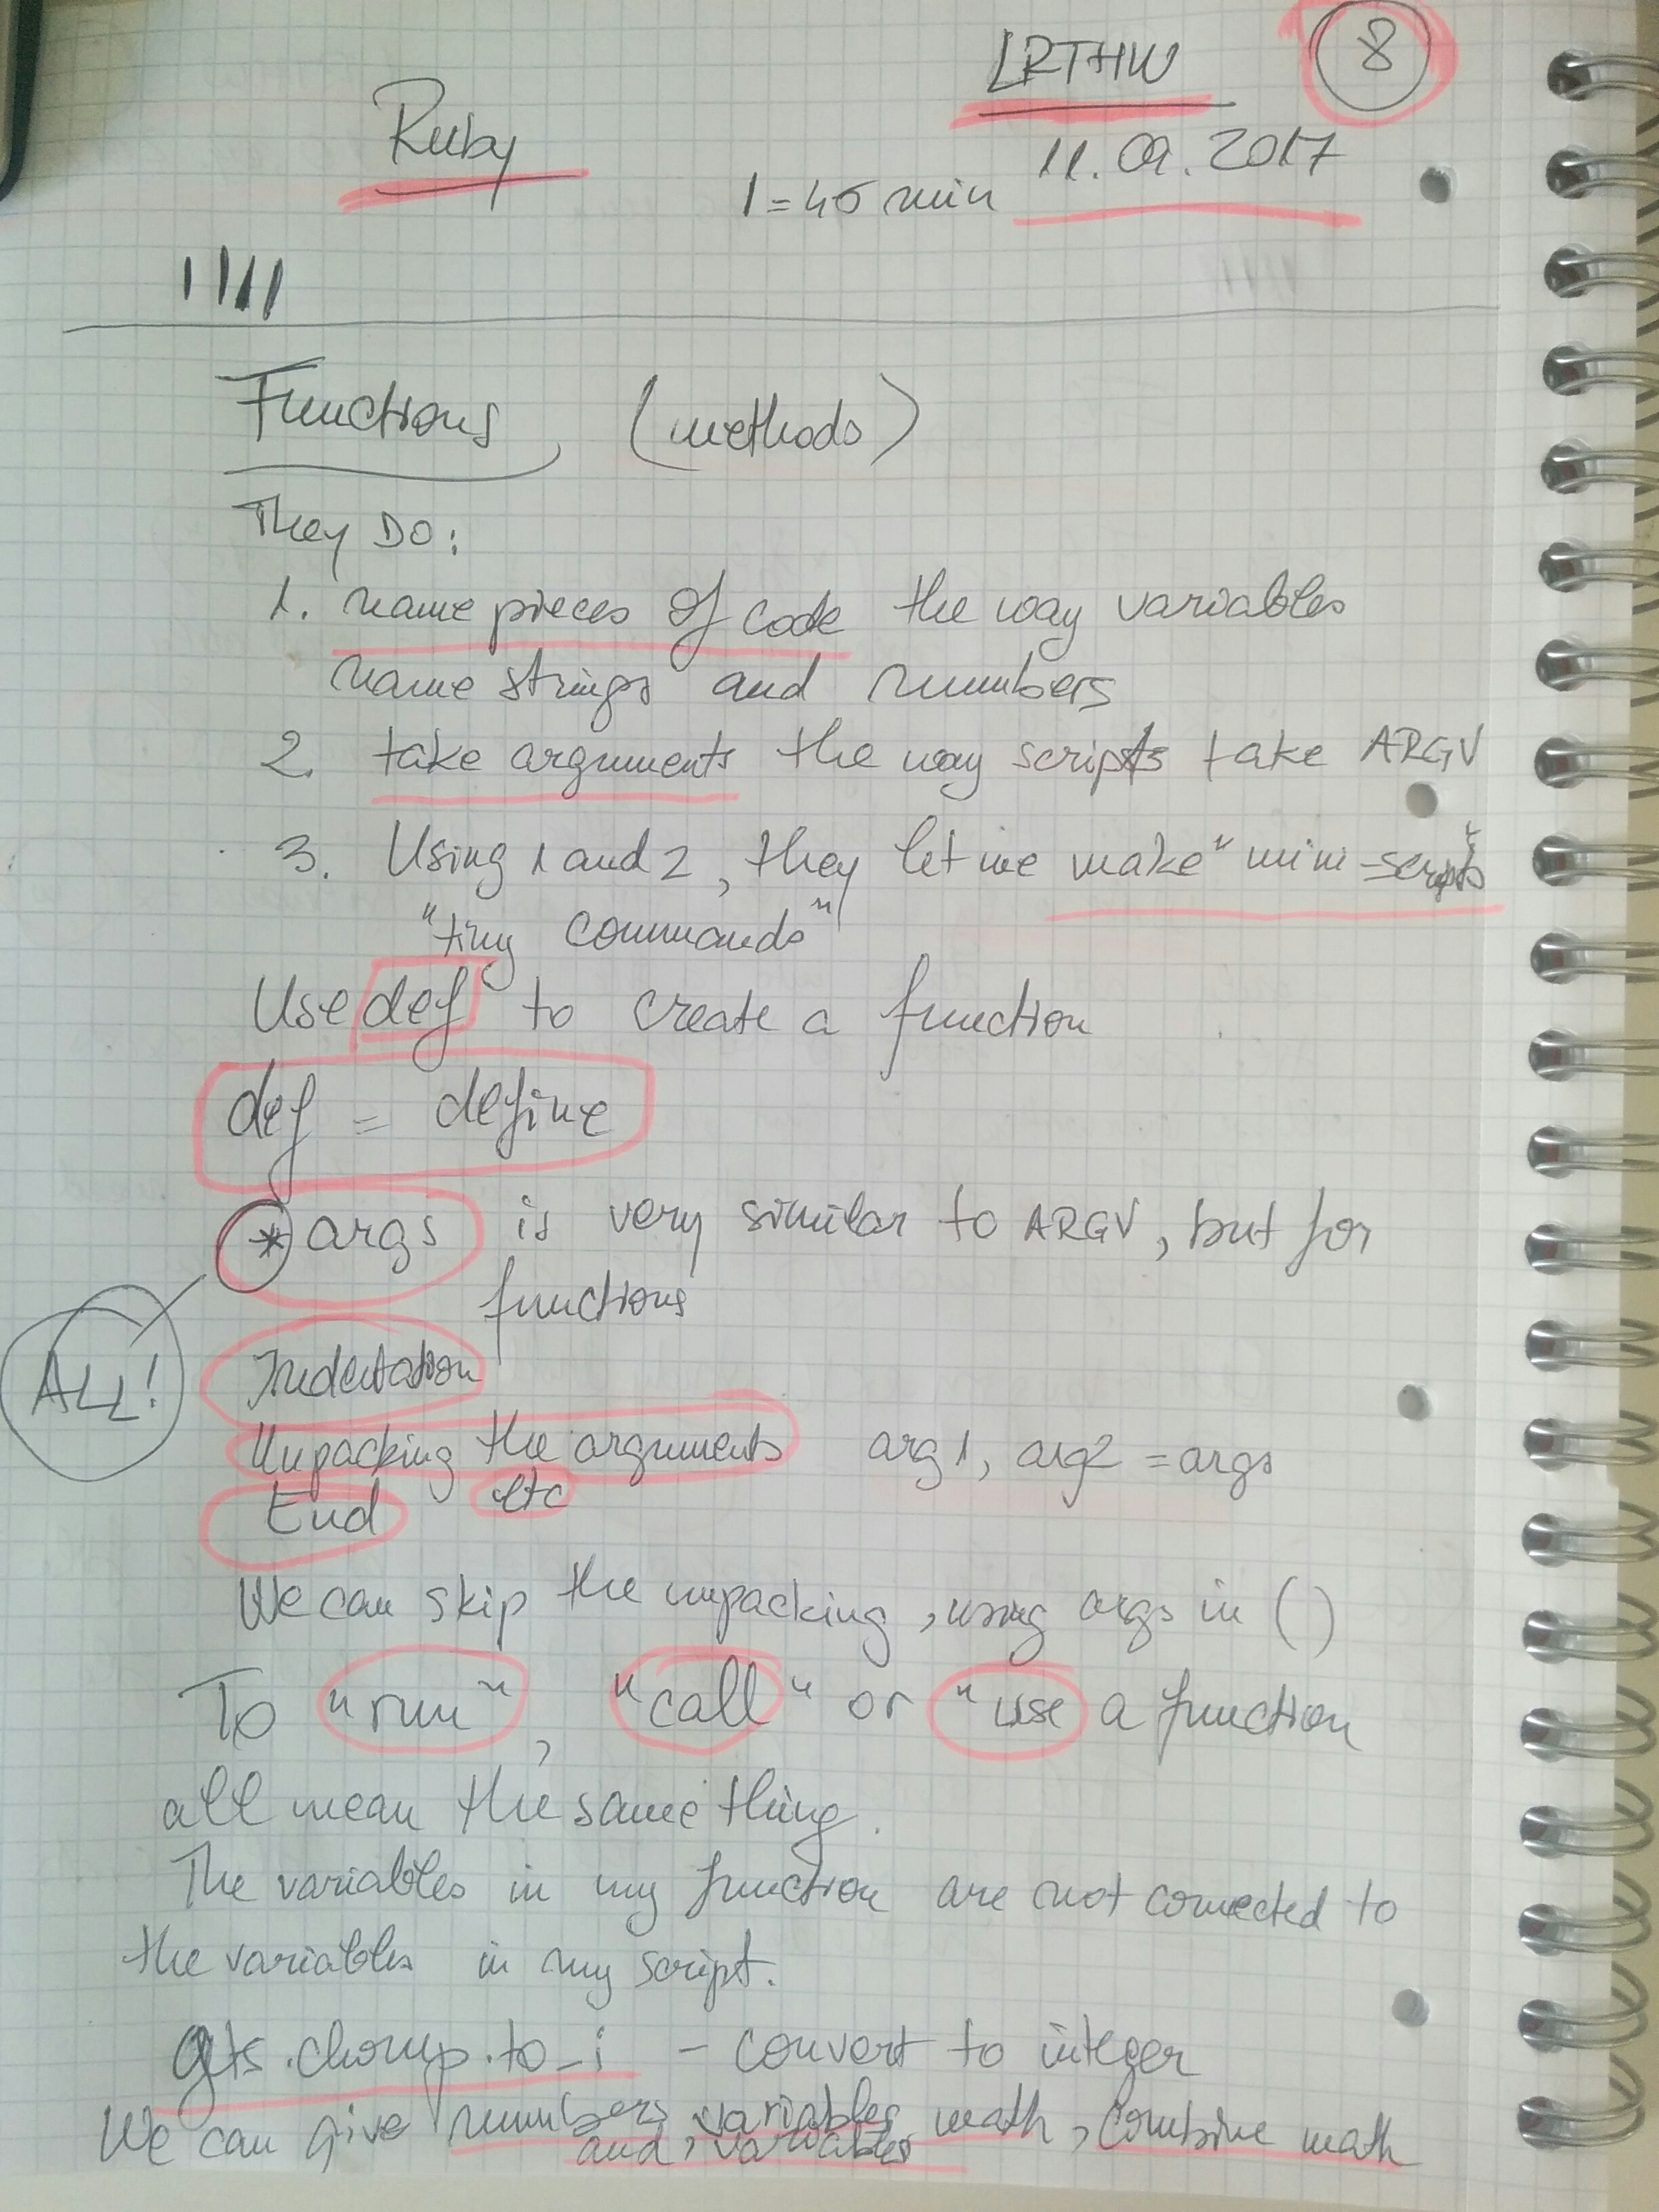 LRTHW
8
Ruby
11.09.2017
1 = 45 min
Functions (methods)
They DO:
1. name pieces of code the way variables
name strings and numbers
2. take arguments the way scripts take ARGV
3. Using 1 and 2, they let me make "mini-scripts"
"tiny commands"
Use def to create a function
def = define
*args is very similar to ARGV, but for
functions
ALL!
Indentation
Unpacking the arguments arg1, arg2 = args
End etc
We can skip the unpacking, using args in ()
To "run", "call" or "use a function
all mean the same thing.
The variables in my function are not connected to
the variables in my script.
gets.chomp.to_i - convert to integer
We can give numbers, variables, math, combine math
and variables